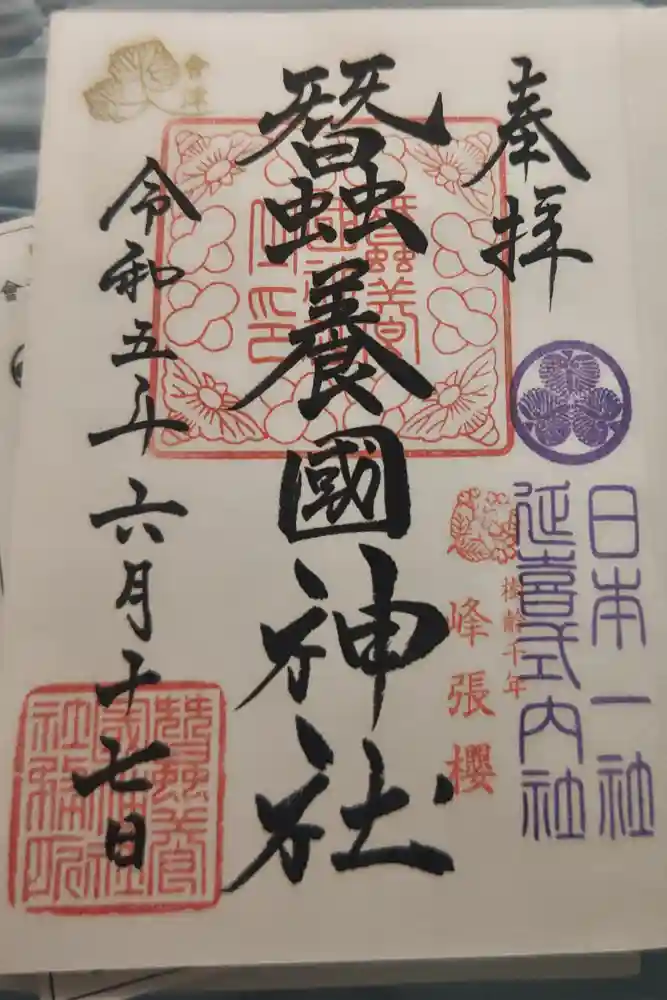 奉拝
日本一社
延喜式内社
樹齢千年
峰張櫻
蠶養國神社
蠶養國神社印
會津
令和五年六月十七日